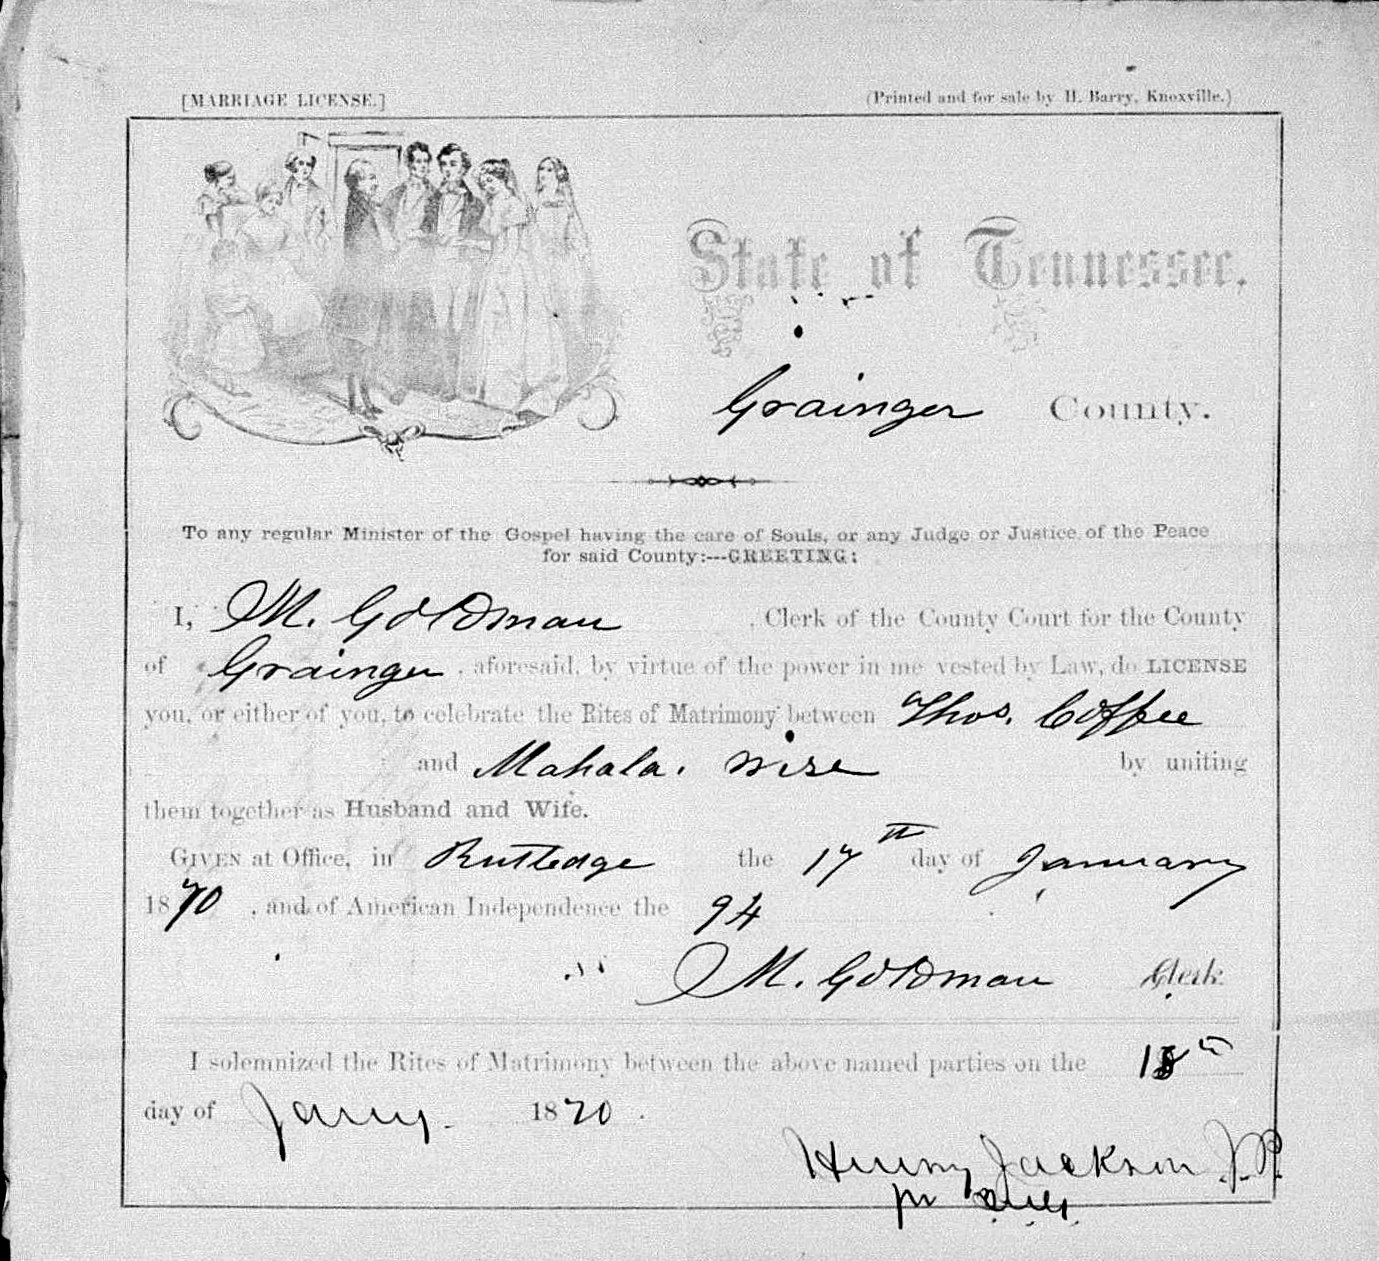 [MARRIAGE LICENSE.]
(Printed and for sale by H. Barry, Knoxville.)
State of Tennessee,
Grainger County.
To any regular Minister of the Gospel having the care of Souls, or any Judge or Justice of the Peace
for said County:---GREETING:
I, M. Goldman, Clerk of the County Court for the County
of Grainger, aforesaid, by virtue of the power in me vested by Law, do LICENSE
you, or either of you, to celebrate the Rites of Matrimony between Thos. Coffee
and Mahala. Wise by uniting
them together as Husband and Wife.
GIVEN at Office, in Rutledge the 17th day of January
1870, and of American Independence the 94
M. Goldman Clerk
I solemnized the Rites of Matrimony between the above named parties on the 18th
day of Jany. 1870.
Henry Jackson J.P.